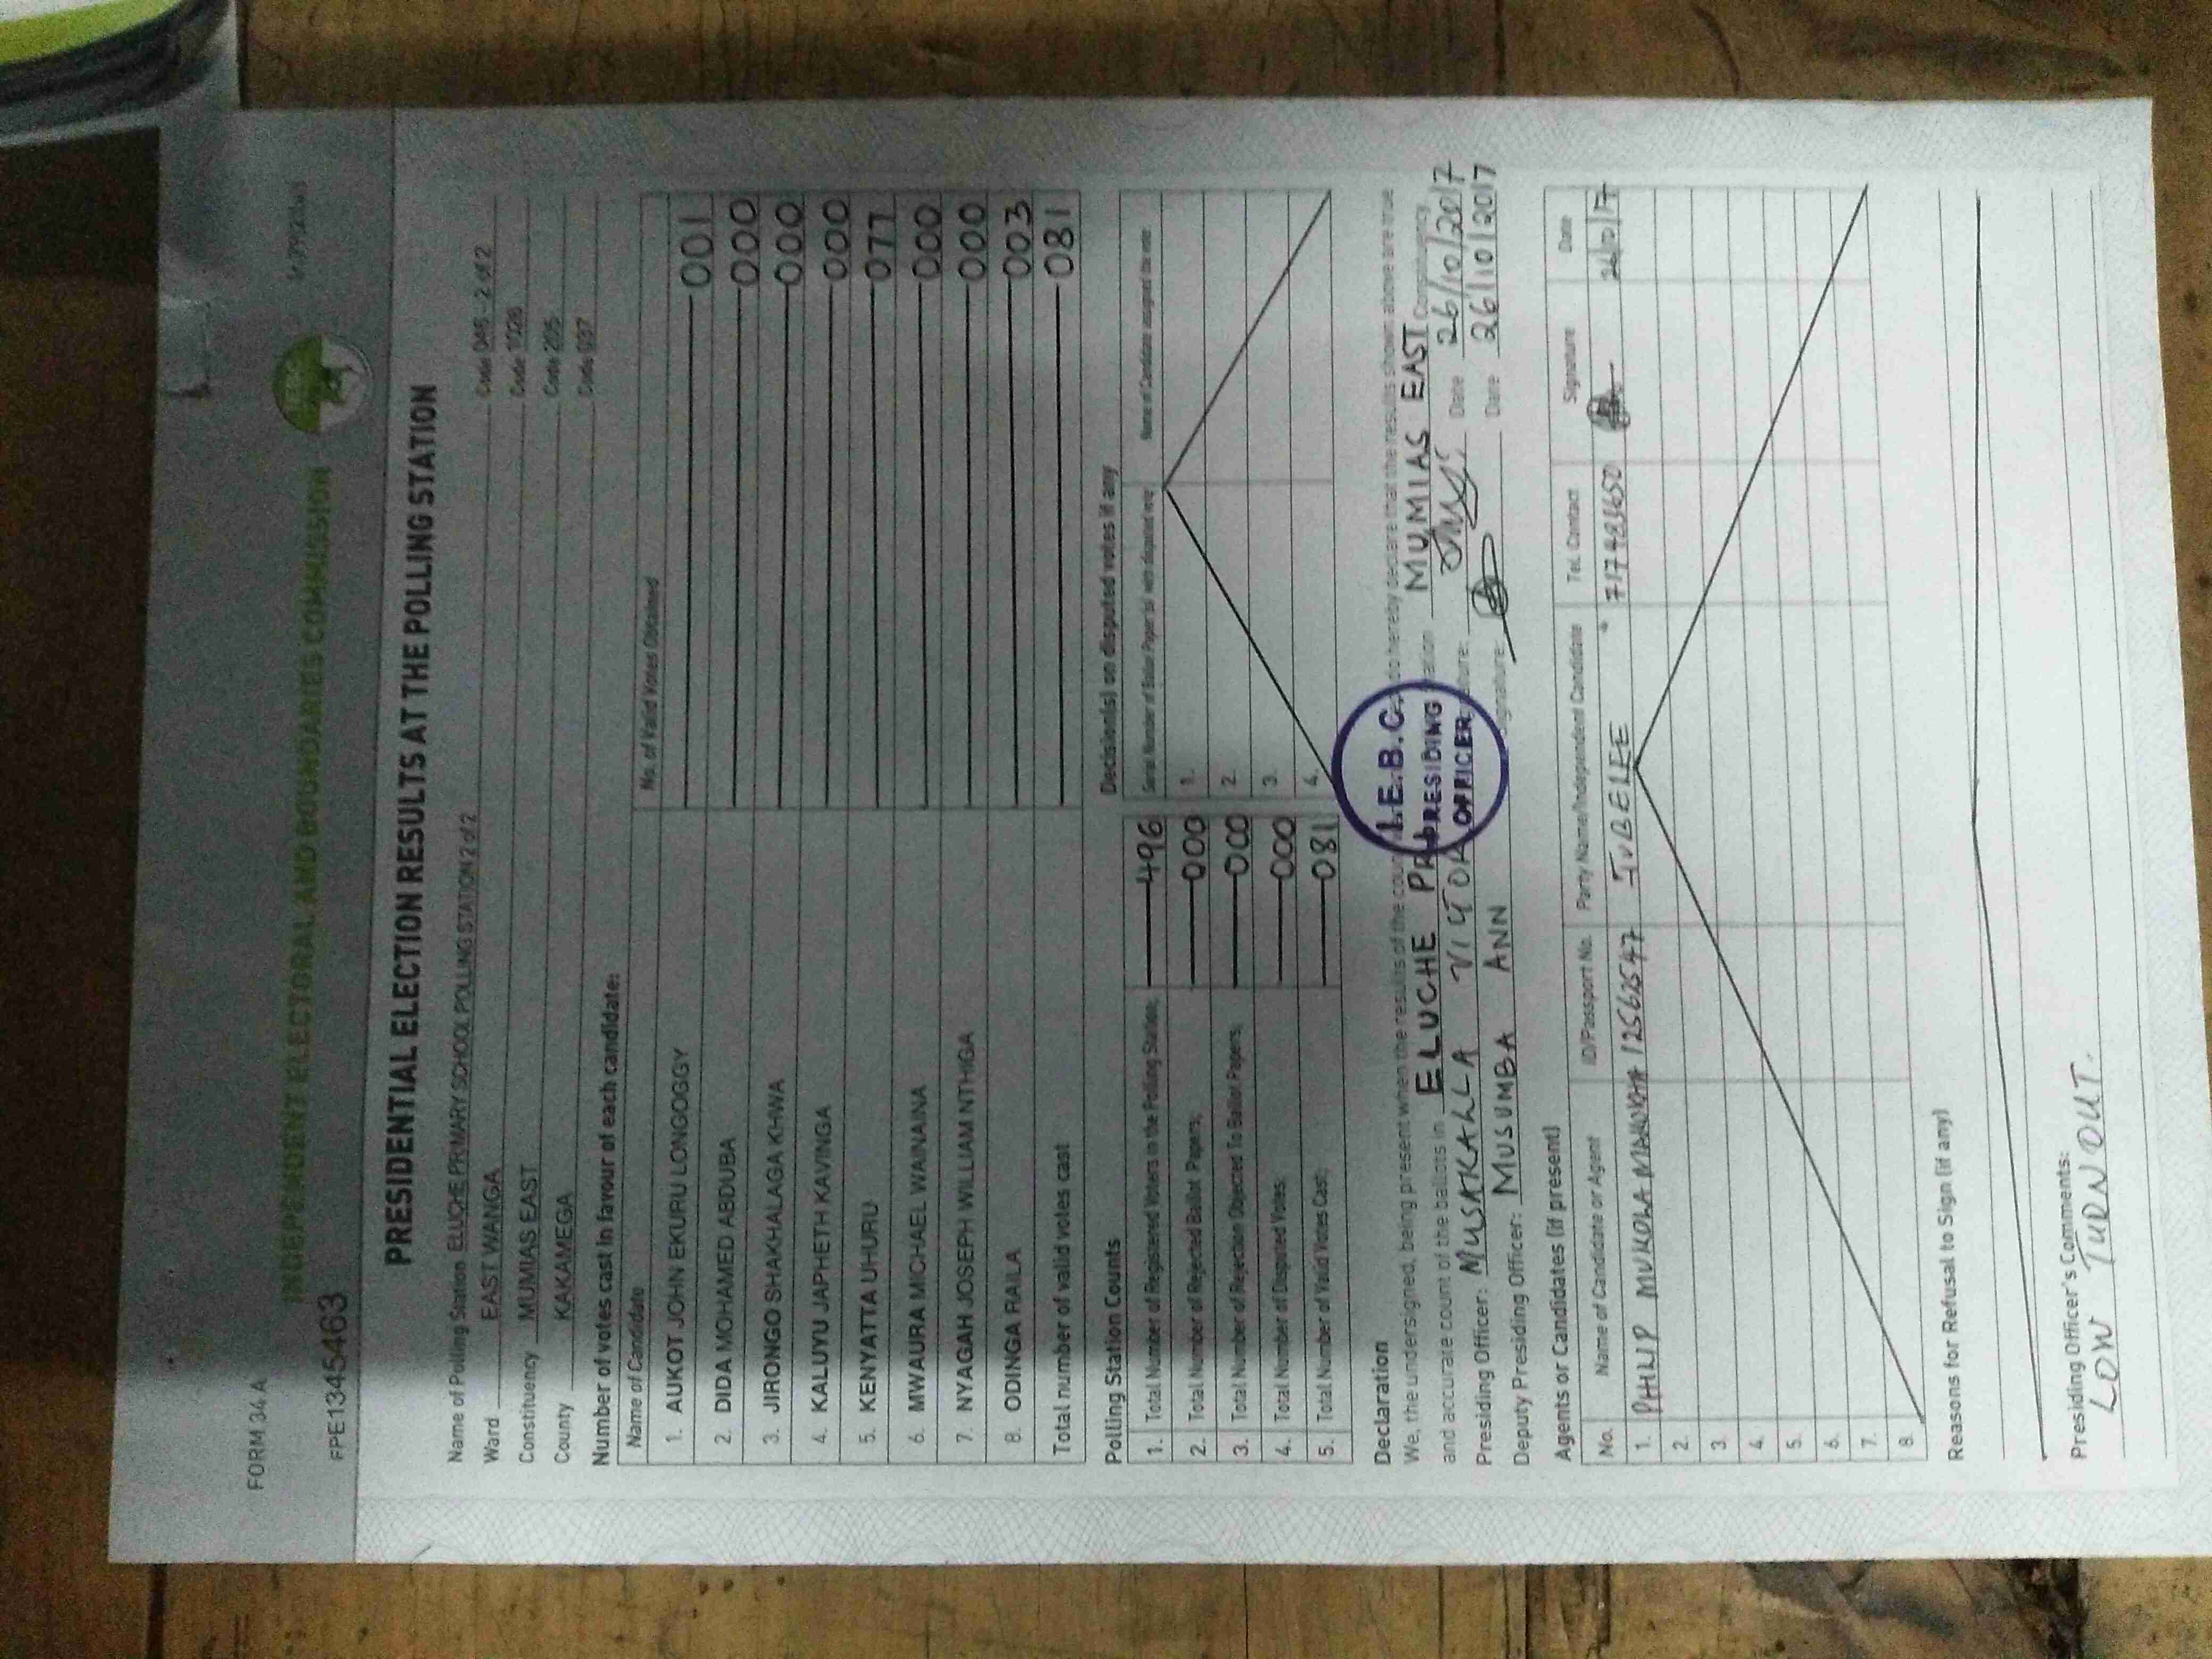 FORM 34 A
INDEPENDENT ELECTORAL AND BOUNDARIES COMMISSION
FPE13454463
PRESIDENTIAL ELECTION RESULTS AT THE POLLING STATION
Name of Polling Station ELUCHE PRIMARY SCHOOL POLLING STATION 2 of 2 Code 046 - 2 of 2
Ward EAST WANGA Code 1026
Constituency MUMIAS EAST Code 205
County KAKAMEGA Code 037
Number of votes cast in favour of each candidate:
Name of Candidate No. of Valid Votes Obtained
1. AUKOT JOHN EKURU LONGOGGY 001
2. DIDA MOHAMED ABDUBA 000
3. JIRONGO SHAKHALAGA KHWA 000
4. KALUYU JAPHETH KAVINGA 000
5. KENYATTA UHURU 077
6. MWAURA MICHAEL WAINAINA 000
7. NYAGAH JOSEPH WILLIAM NTHIGA 000
8. ODINGA RAILA 003
Total number of valid votes cast 081
Polling Station Counts
1. Total Number of Registered Voters in the Polling Station; 496
2. Total Number of Rejected Ballot Papers; 000
3. Total Number of Rejection Objected To Ballot Papers; 000
4. Total Number of Disputed Votes; 000
5. Total Number of Valid Votes Cast; 081
Decision(s) on disputed votes if any
Serial Number of Ballot Paper(s) with disputed vote Name of Candidate assigned the vote
1.
2.
3.
4.
Declaration
We, the undersigned, being present when the results of the count do hereby declare that the results shown above are true
and accurate count of the ballots in ELUCHE MUMIAS EAST Constituency
Presiding Officer: MUSAKALLA VICTOR Date 26/10/2017
Deputy Presiding Officer: MUSUMBA ANN Signature: Date 26/10/2017
I.E.B.C.
PRESIDING
OFFICER
Agents or Candidates (if present)
No. Name of Candidate or Agent ID/Passport No. Party Name/Independent Candidate Tel. Contact Signature Date
1. PHILIP MUKOLA JUBELEE
2.
3.
4.
5.
6.
7.
8.
Reasons for Refusal to Sign (if any)
Presiding Officer's Comments:
LOW TURNOUT.